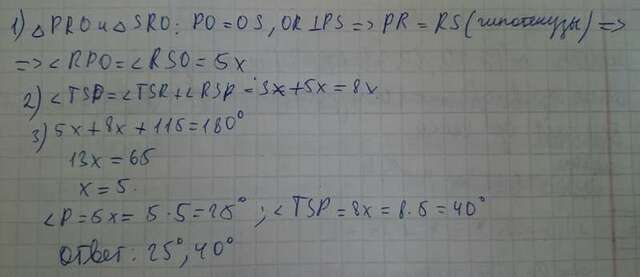 1) △PRO и △SRO: PO = OS, OR⊥PS => PR = RS (гипотенузы) =>
=> ∠RPO = ∠RSO = 5x
2) ∠TSP = ∠TSR + ∠RSP = 3x + 5x = 8x
3) 5x + 8x + 115 = 180°
13x = 65
x = 5.
∠P = 5x = 5·5 = 25°; ∠TSP = 8x = 8·5 = 40°
Ответ: 25°, 40°